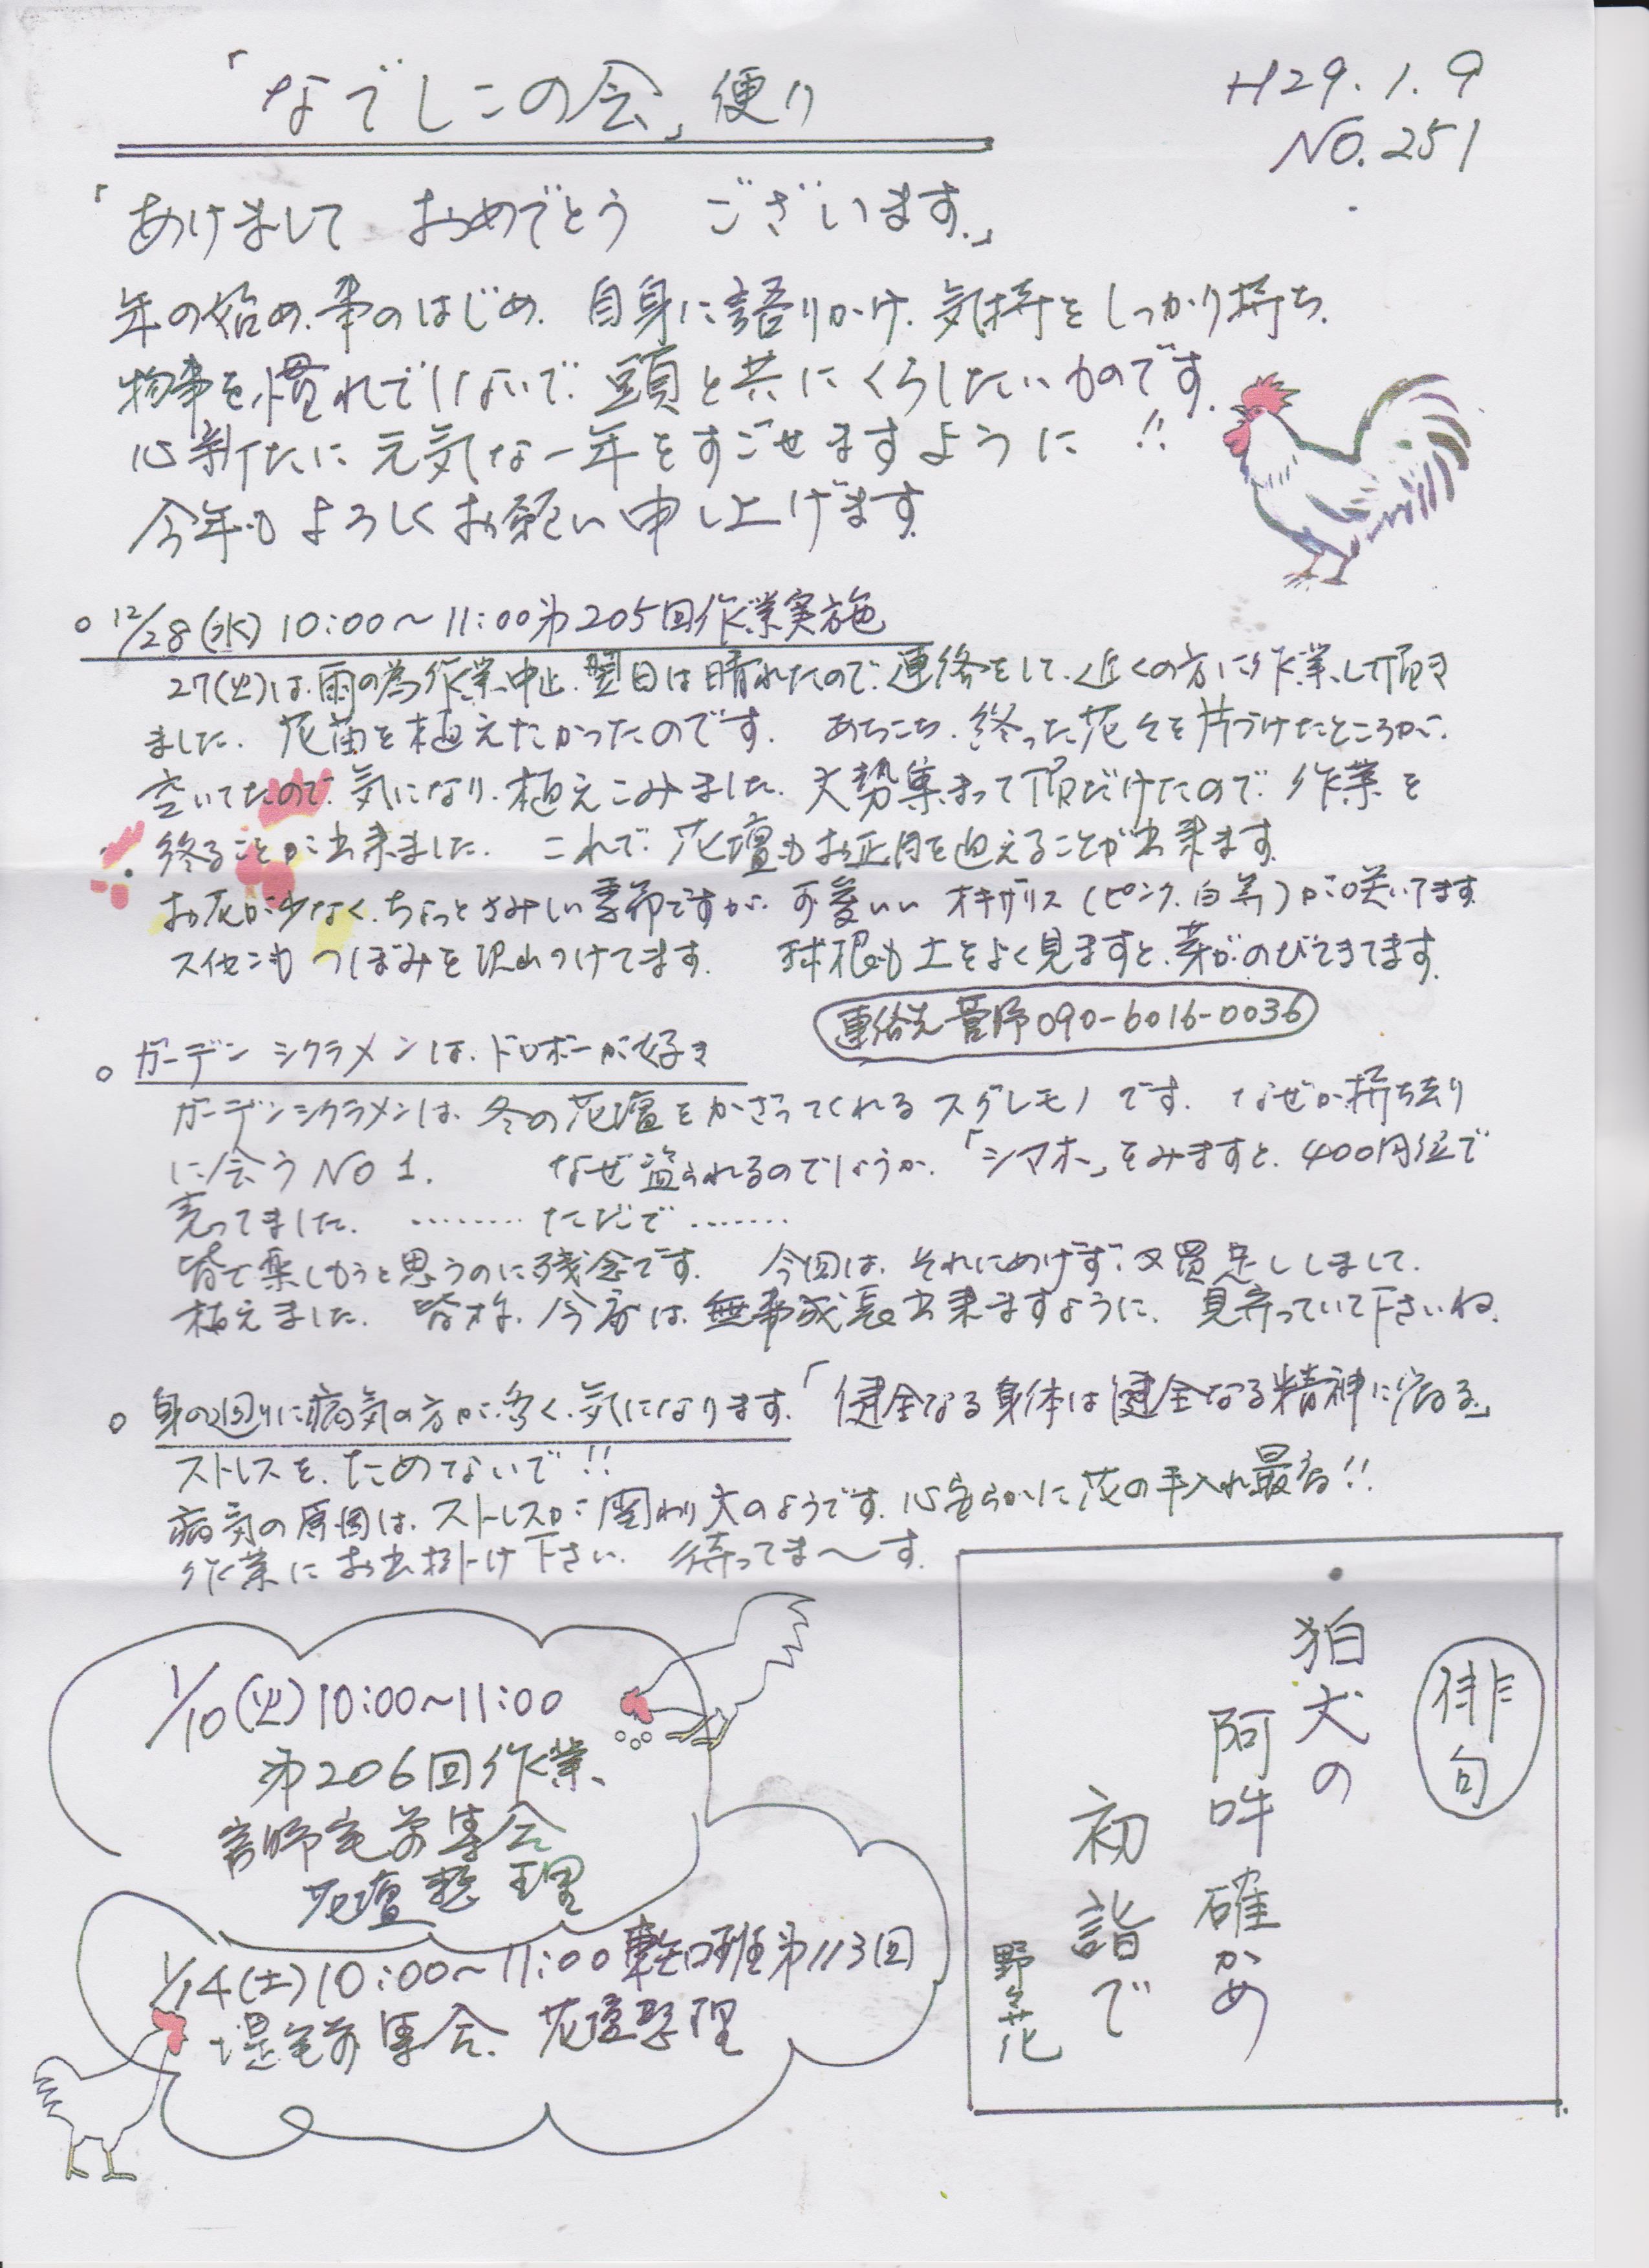 「なでしこの会」便り
H29.1.9
NO.251
「あけまして おめでとう ございます。」
年の始め、事のはじめ、自身に語りかけ、気持をしっかり持ち、
物事を慣れでしないで、頭と共にくらしたいものです。
心新たに元気な一年をすごせますように!!
今年もよろしくお願い申し上げます。
○12/28(水)10:00〜11:00第205回作業実施
27(火)は、雨の為作業中止、翌日は晴れたので、連絡をして、近くの方に作業して頂き
ました。花苗を植えたかったのです。あちこち、終った花々を片づけたところが、
空いてたので、気になり、植えこみました。大勢集まって頂だけたので、作業を
終ることが出来ました。これで、花壇もお正月を迎えることが出来ます。
お花が少なく、ちょっとさみしい季節ですが、可愛いい オキザリス(ピンク、白等)が咲いてます。
スイセンも つぼみを沢山つけてます。球根も土をよく見ますと、芽がのびてきてます。
連絡先 菅野090-6016-0036
○ガーデンシクラメンは、ドロボーが好き
ガーデンシクラメンは、冬の花壇をかざってくれるスグレモノです。なぜか持ち去り
に会うNO1。なぜ盗られるのでしょうか。「シマホ」をみますと、400円位で
売ってました。………ただで………
皆で楽しもうと思うのに残念です。今回は、それにめげず、又買足ししまして、
植えました。皆様、今度は、無事成長出来ますように、見守っていて下さいね。
○身の廻りに病気の方が多く、気になります。「健全なる身体は健全なる精神に宿る」
ストレスを、ためないで!!
病気の原因は、ストレスが関わり大のようです。心安らかに花の手入れ最高!!
作業にお出掛け下さい。待ってま〜す。
1/10(火)10:00〜11:00
第206回作業、
菅野宅前集合
花壇整理
1/14(土)10:00〜11:00 東口班第113回
堤宅前集合、花壇整理
俳句
狛犬の
阿吽確かめ
初詣で
野花